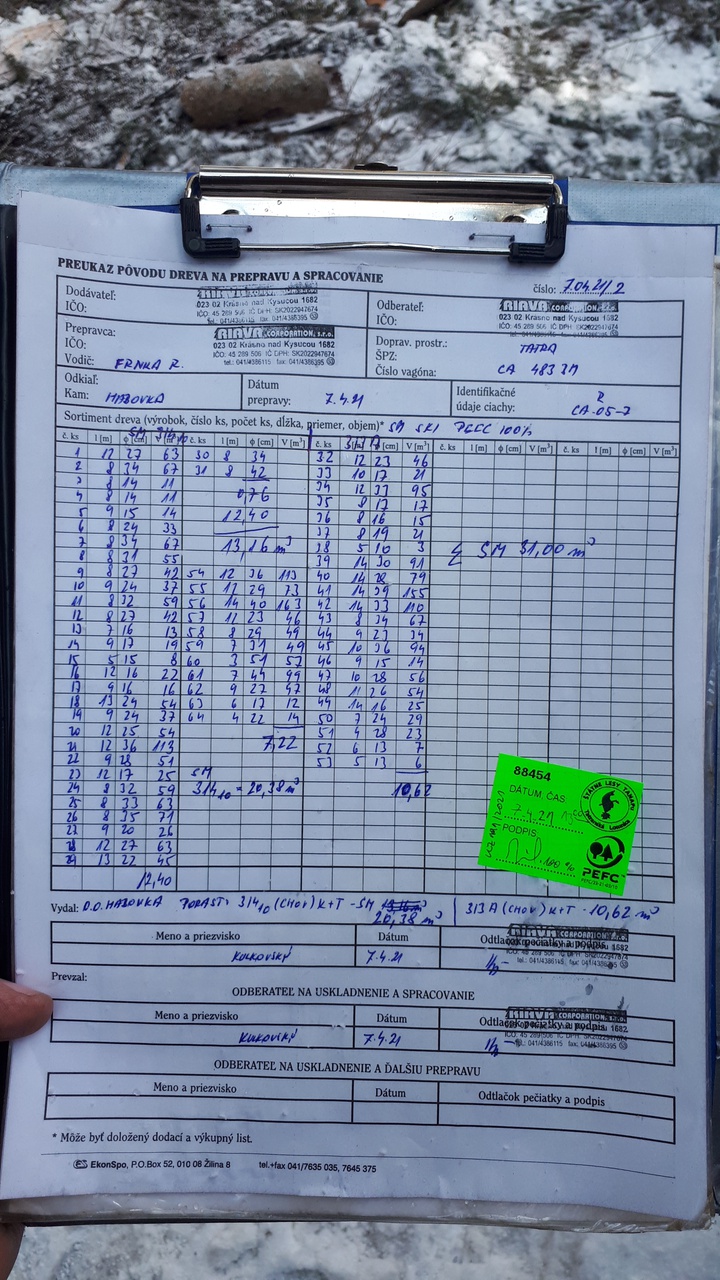 PREUKAZ PÔVODU DREVA NA PREPRAVU A SPRACOVANIE
číslo: 7.04.21/2
Dodávateľ:
IČO:
RIAVA CORPORATION, s.r.o.
023 02 Krásno nad Kysucou 1682
IČO: 45 289 506 IČ DPH: SK2022947674
tel.: 041/4386115 fax: 041/4386395
Odberateľ:
IČO:
RIAVA CORPORATION, s.r.o.
023 02 Krásno nad Kysucou 1682
IČO: 45 289 506 IČ DPH: SK2022947674
tel.: 041/4386115 fax: 041/4386395
Prepravca:
IČO:
Vodič: FRNKA R.
RIAVA CORPORATION, s.r.o.
023 02 Krásno nad Kysucou 1682
IČO: 45 289 506 IČ DPH: SK2022947674
tel.: 041/4386115 fax: 041/4386395
Doprav. prostr.: TATRA
ŠPZ:
Číslo vagóna: CA 483
Odkiaľ:
Kam: HABOVKA
Dátum
prepravy: 7.4.21
Identifikačné
údaje ciachy: R
CA-05-7
Sortiment dreva (výrobok, číslo ks, počet ks, dĺžka, priemer, objem)* SM PEFC 100%
č. ks l [m] ϕ [cm] V [m³] č. ks l [m] ϕ [cm] V [m³] č. ks l [m] ϕ [cm] V [m³] č. ks l [m] ϕ [cm] V [m³] č. ks l [m] ϕ [cm] V [m³]
1 12 27 63 30 8 34 32 12 23 46
2 8 34 67 31 8 42 33 10 17 21
3 8 14 11 34 12 33 95
4 8 14 11 0,76 35 8 17 17
5 9 15 14 12,40 36 8 16 15
6 8 24 33 37 8 19 21
7 8 34 67 13,16 m³ 38 5 10 3 Σ SM 31,00 m³
8 8 31 55 39 14 30 91
9 8 27 42 54 12 36 113 40 14 28 79
10 9 24 37 55 12 29 73 41 14 39 155
11 8 32 59 56 14 40 163 42 14 33 110
12 8 27 42 57 12 23 46 43 8 34 67
13 7 16 13 58 8 29 49 44 9 23 34
14 9 17 19 59 7 31 49 45 10 36 94
15 5 15 8 60 3 51 57 46 9 15 14
16 12 16 22 61 7 44 99 47 10 28 56
17 9 16 16 62 9 27 47 48 11 26 54
18 13 24 54 63 6 17 12 49 14 16 25
19 9 24 37 64 4 22 14 50 7 24 29
20 12 25 54 51 4 28 23
21 12 36 113 7,22 52 6 13 7
22 9 28 51 53 5 13 6
23 12 17 25 SM
24 8 32 59 314₁₀ = 20,38 m³ 10,62
25 8 33 63
26 8 35 71
27 9 20 26
28 12 27 63
29 13 22 45
12,40
88454
DÁTUM ČAS
7.4.21
PODPIS
100 %
ŠTÁTNE LESY TANAPU
PEFC
Vydal: O.O. HABOVKA PORAST: 314₁₀ (CHOV) K+T - SM 20,38 m³ 313A (CHOV) K+T - 10,62 m³
Meno a priezvisko Dátum Odtlačok pečiatky a podpis
KULKOVSKÝ 7.4.21
RIAVA CORPORATION, s.r.o.
Prevzal:
ODBERATEĽ NA USKLADNENIE A SPRACOVANIE
Meno a priezvisko Dátum Odtlačok pečiatky a podpis
KULKOVSKÝ 7.4.21
RIAVA CORPORATION, s.r.o.
tel.: 041/4386115 fax: 041/4386395
ODBERATEĽ NA USKLADNENIE A ĎALŠIU PREPRAVU
Meno a priezvisko Dátum Odtlačok pečiatky a podpis
* Môže byť doložený dodací a výkupný list.
EkonSpo, P.O.Box 52, 010 08 Žilina 8 tel.+fax 041/7635 035, 7645 375